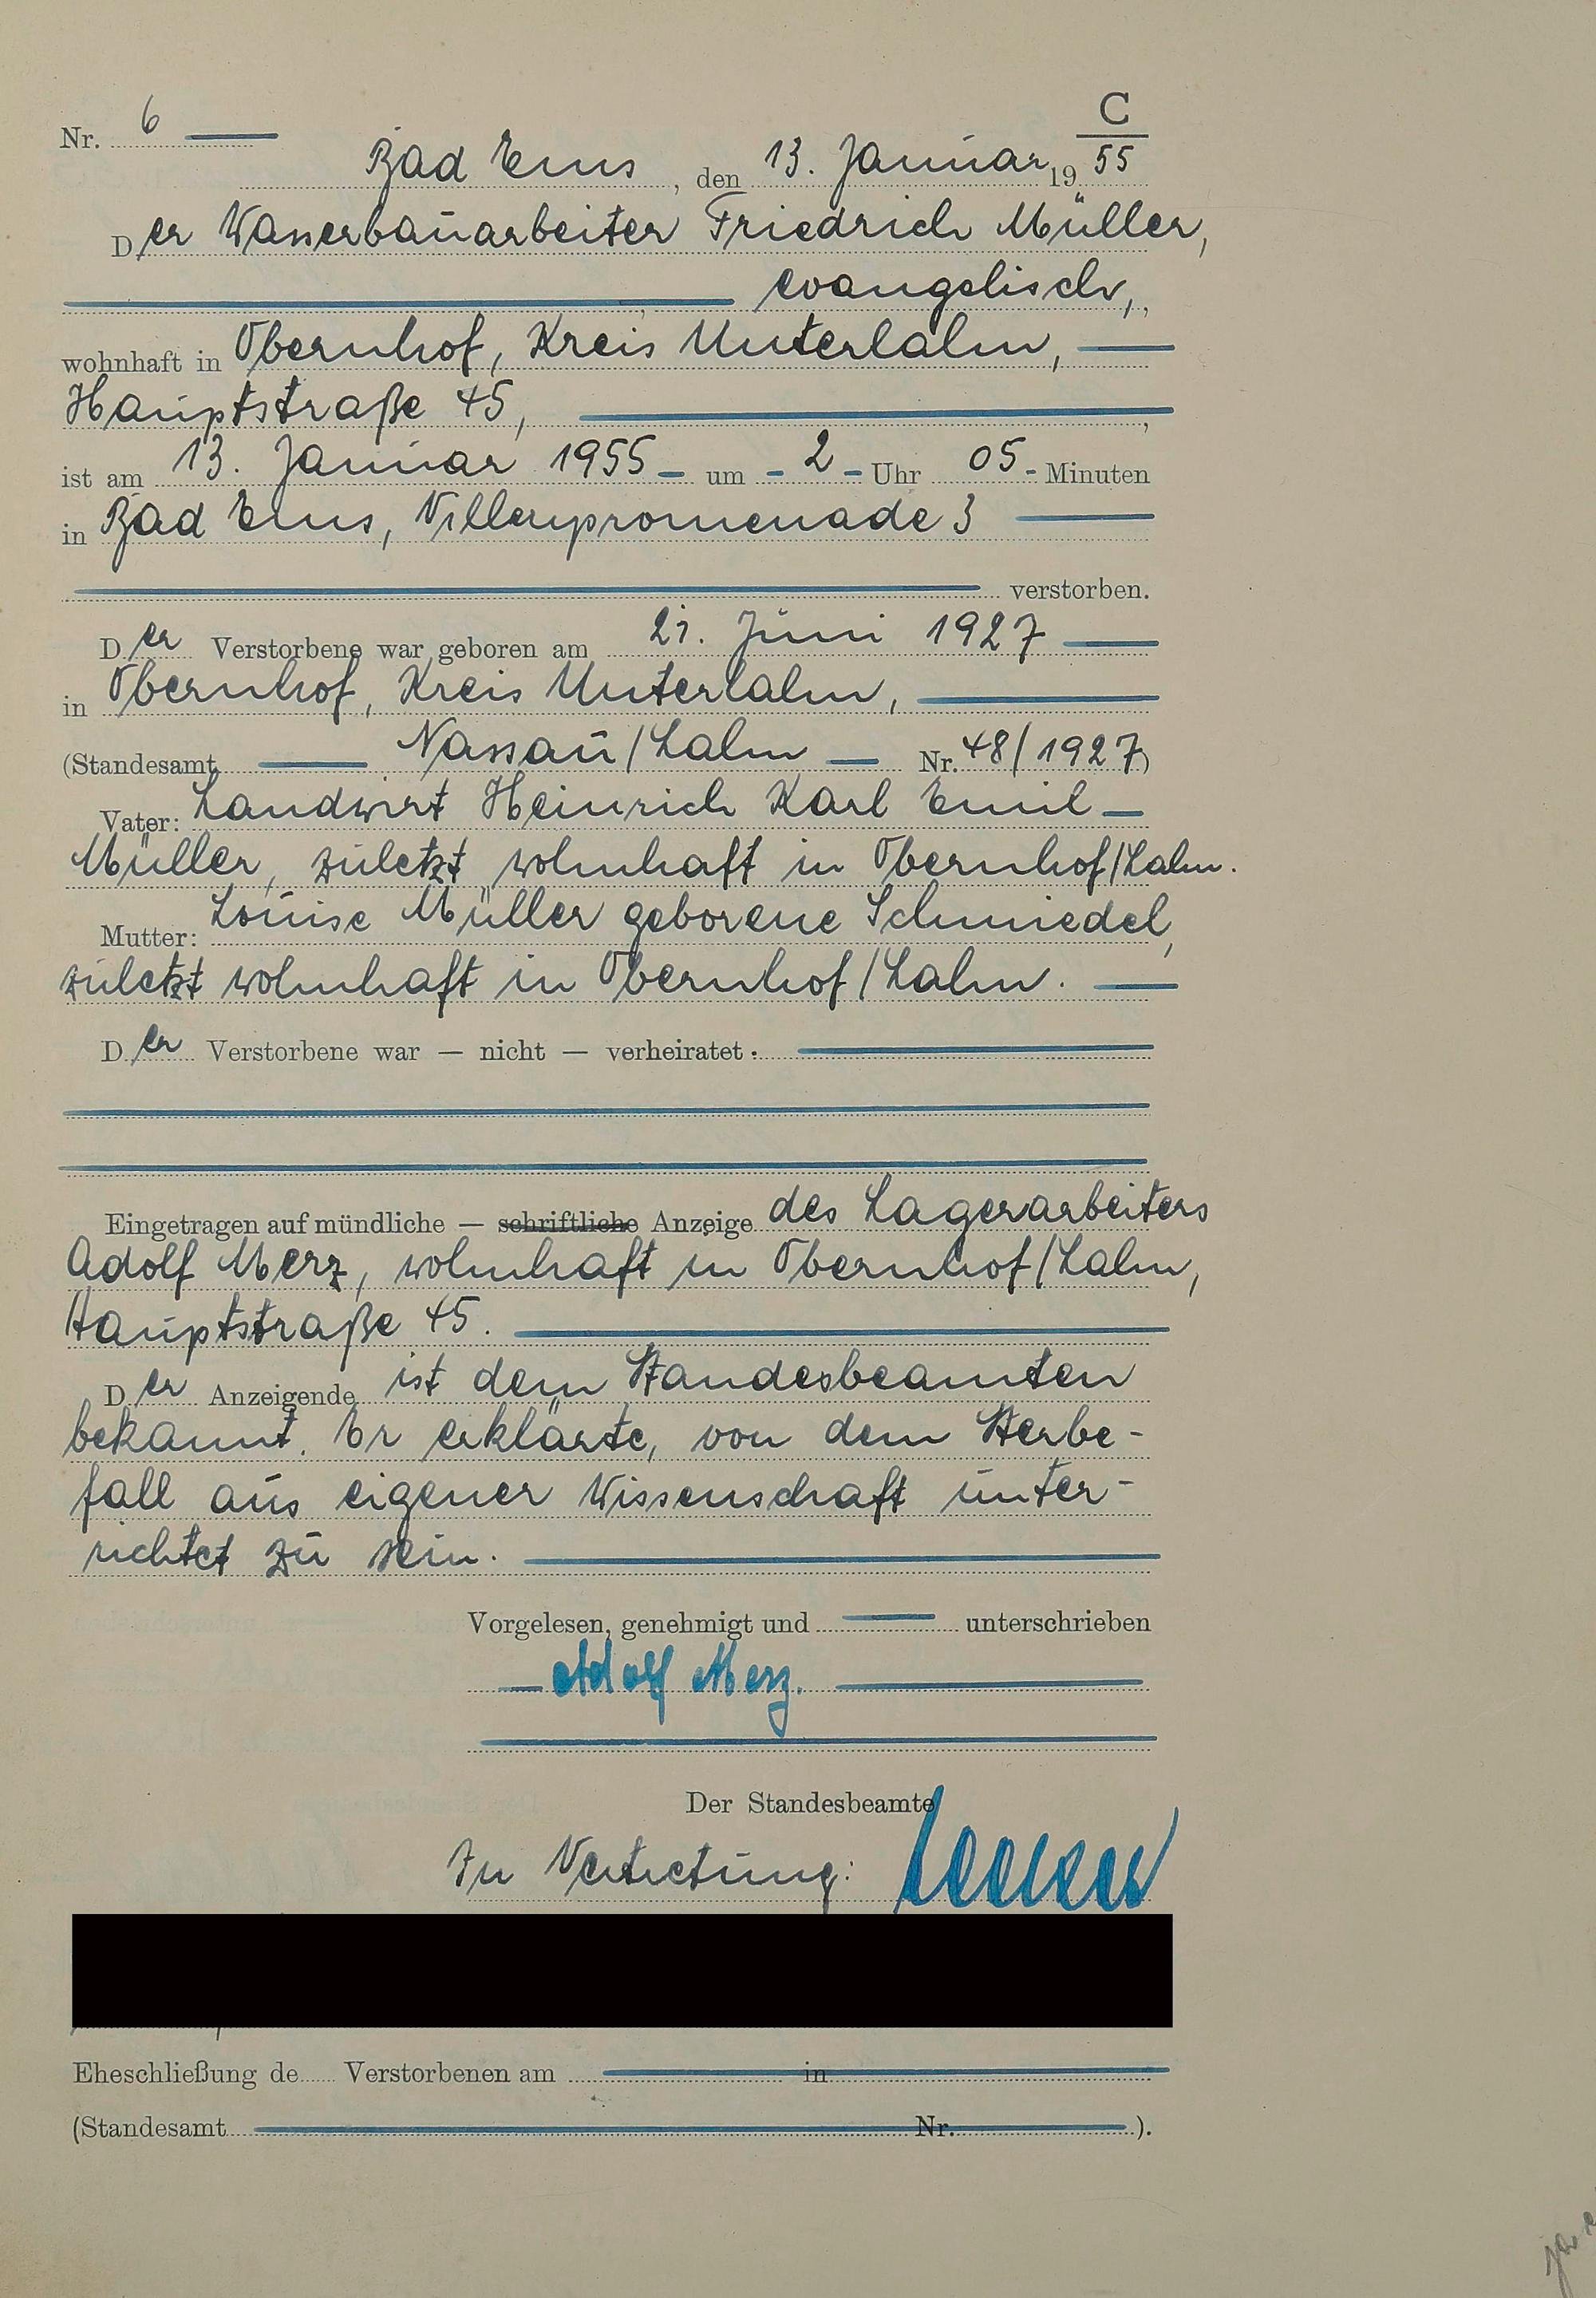 C
Nr. 6
Bad Ems, den 13. Januar 19 55
Der Wasserbauarbeiter Friedrich Müller,
evangelisch,,
wohnhaft in Obernhof, Kreis Unterlahn,
Hauptstraße 45,,
ist am 13. Januar 1955 um 2 Uhr 05 Minuten
in Bad Ems, Villenpromenade 3
verstorben.
Der Verstorbene war geboren am 21. Juni 1927
in Obernhof, Kreis Unterlahn,
(Standesamt Nassau/Lahn Nr. 48/1927)
Vater: Landwirt Heinrich Karl Emil
Müller, zuletzt wohnhaft in Obernhof/Lahn.
Mutter: Louise Müller geborene Schmiedel,
zuletzt wohnhaft in Obernhof/Lahn.
Der Verstorbene war — nicht — verheiratet.
Eingetragen auf mündliche — schriftliche Anzeige des Lagerarbeiters
Adolf Merz, wohnhaft in Obernhof/Lahn,
Hauptstraße 45.
Der Anzeigende ist dem Standesbeamten
bekannt. Er erklärte, von dem Sterbe-
fall aus eigener Wissenschaft unter-
richtet zu sein.
Vorgelesen, genehmigt und unterschrieben
Adolf Merz.
Der Standesbeamte
In Vertretung:
Eheschließung de Verstorbenen am in
(Standesamt Nr. ).